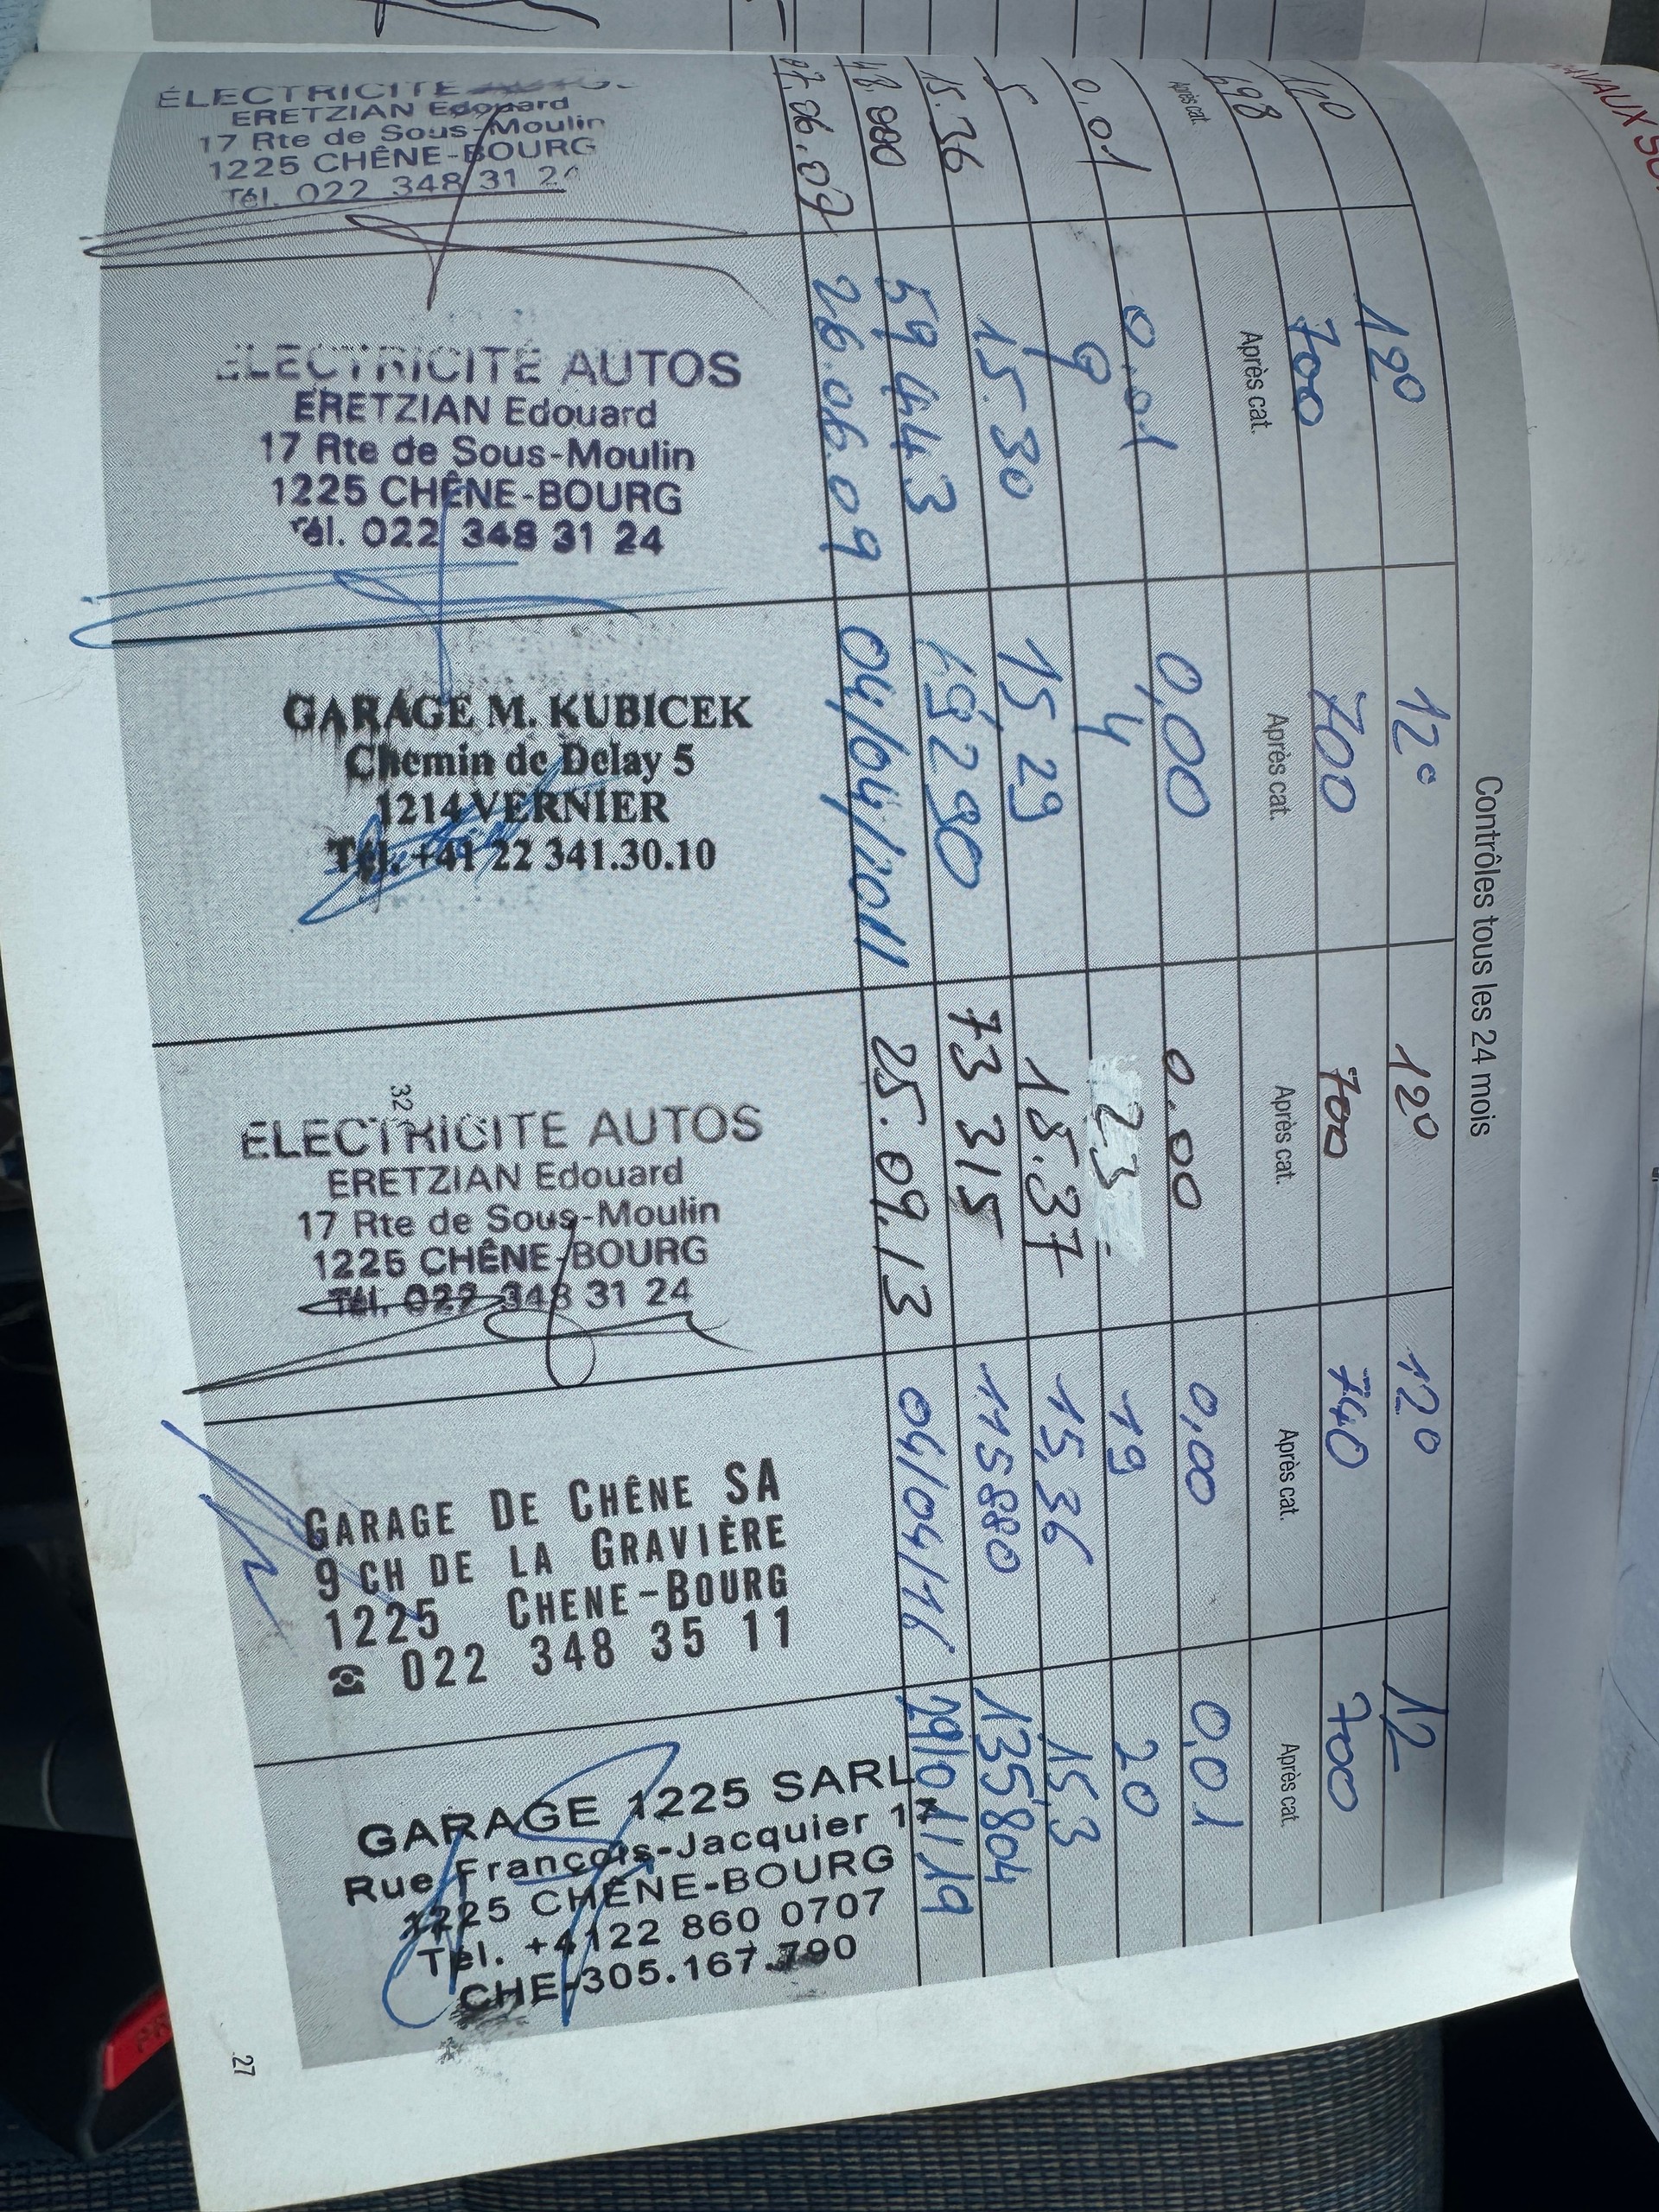 Contrôles tous les 24 mois
12° 12° 12° 12° 12
698 700 700 700 740 700
Après cat. Après cat. Après cat. Après cat. Après cat. Après cat.
0.01 0.01 0,00 0.00 0,00 0,01
5 9 4 23 19 20
15.36 15.30 15,29 15.37 15,36 15,3
48.000 59 443 69290 73 315 115880 135804
07.06.07 26.06.09 04/04/2011 25.09.13 04/04/16 29/01/19
ÉLECTRICITÉ
ERETZIAN Edouard
17 Rte de Sous-Moulin
1225 CHÊNE-BOURG
Tél. 022 348 31 24
ELECTRICITÉ AUTOS
ERETZIAN Edouard
17 Rte de Sous-Moulin
1225 CHÊNE-BOURG
Tél. 022 348 31 24
GARAGE M. KUBICEK
Chemin de Delay 5
1214 VERNIER
Tél. +41 22 341.30.10
32
ELECTRICITE AUTOS
ERETZIAN Edouard
17 Rte de Sous-Moulin
1225 CHÊNE-BOURG
Tél. 022 348 31 24
GARAGE DE CHÊNE SA
9 CH DE LA GRAVIÈRE
1225 CHENE-BOURG
☎ 022 348 35 11
GARAGE 1225 SARL
Rue François-Jacquier 17
1225 CHÊNE-BOURG
Tél. +4122 860 0707
CHE-305.167.790
27